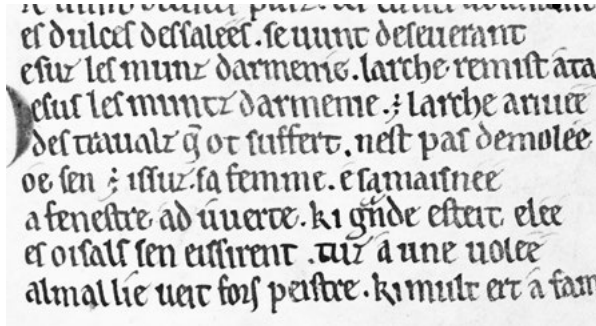 es dulces dessalees . se uunt deseuerant
e suz les munz darmenie . larche remist ata
Desus les muntz darmenie . ⁊ larche ariuee
des traualz q̄ ot suffert . nest pas demolee
oe sen ⁊ issuz . sa femme . e sa maisnee
a fenestre ad uuerte . ki gnde esteit elee
es oisals sen eissirent . tuz a une uolee
almallie ueit fors peistre . ki mult ert a fam